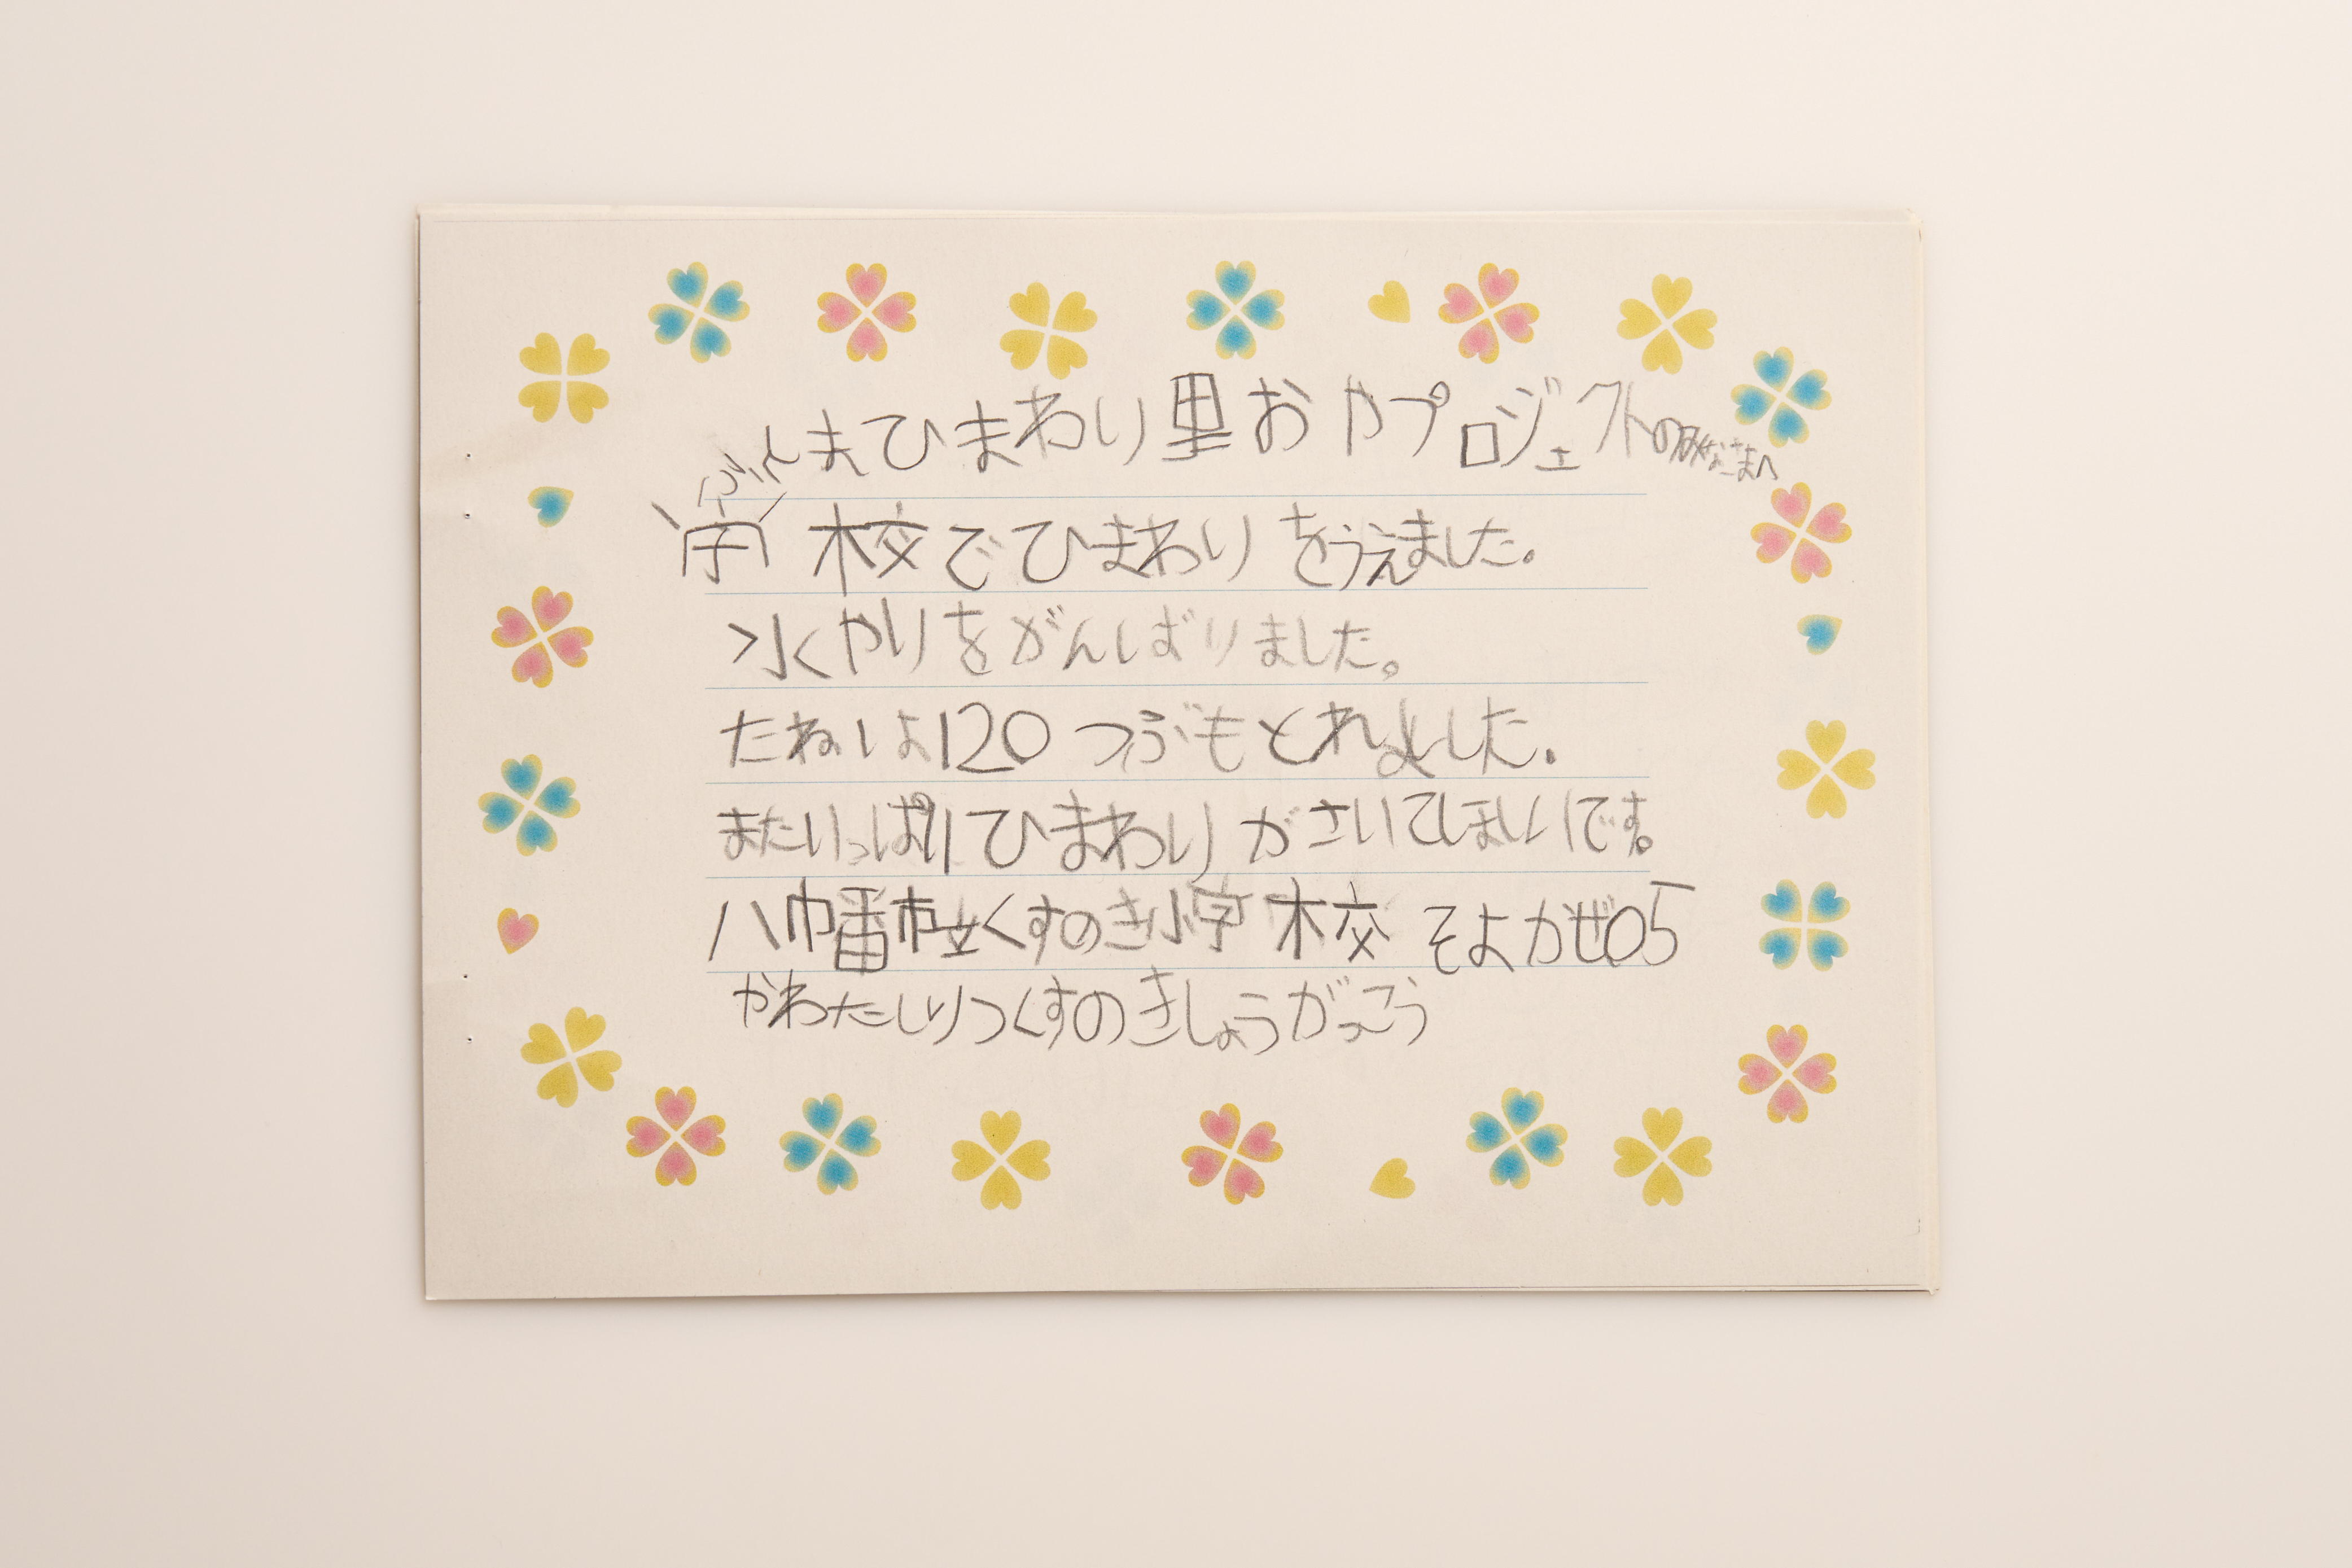 ふくしまひまわり里おやプロジェクトのみなさまへ
学校でひまわりをうえました。
水やりをがんばりました。
たねは120つぶもとれました。
またいっぱいひまわりがさいてほしいです。
八幡市立くすのき小学校 そよかぜ05
やわたしりつくすのきしょうがっこう